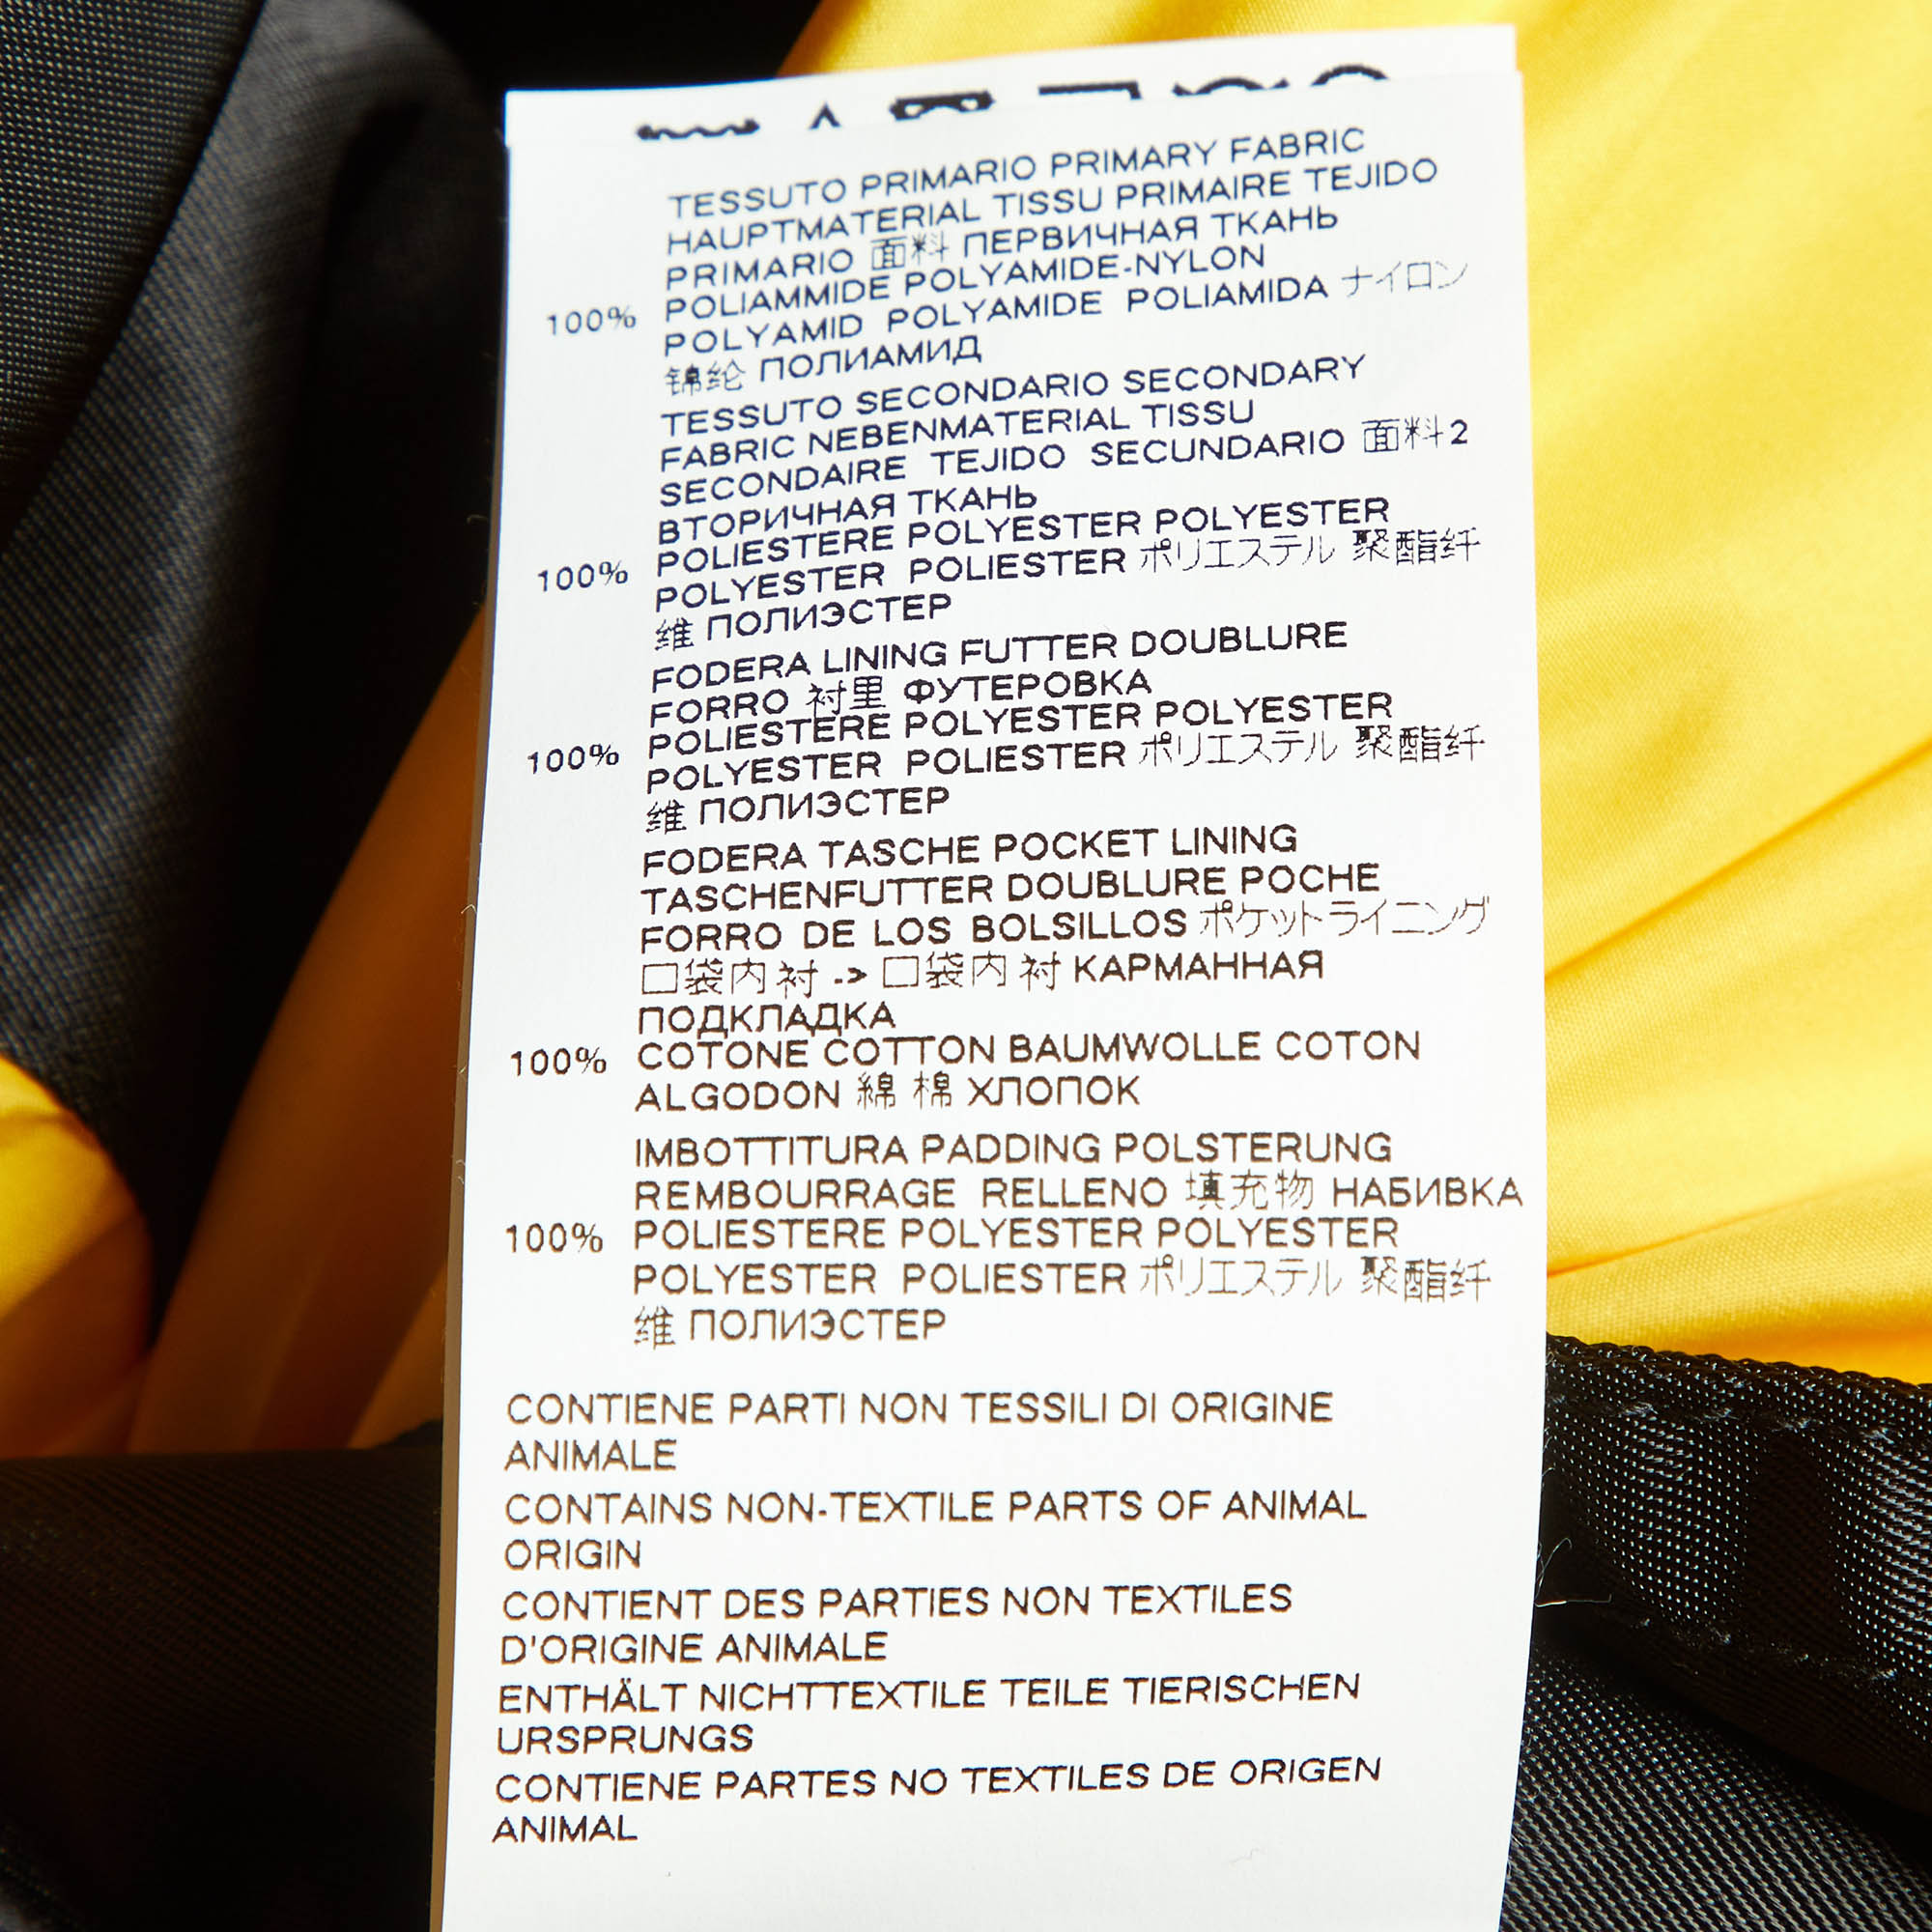 TESSUTO PRIMARIO PRIMARY FABRIC
HAUPTMATERIAL TISSU PRIMAIRE TEJIDO
PRIMARIO 面料 ПЕРВИЧНАЯ ТКАНЬ
100% POLIAMMIDE POLYAMIDE-NYLON
POLYAMID POLYAMIDE POLIAMIDA ナイロン
锦纶 ПОЛИАМИД
TESSUTO SECONDARIO SECONDARY
FABRIC NEBENMATERIAL TISSU
SECONDAIRE TEJIDO SECUNDARIO 面料2
ВТОРИЧНАЯ ТКАНЬ
100% POLIESTERE POLYESTER POLYESTER
POLYESTER POLIESTER ポリエステル 聚酯纤
维 ПОЛИЭСТЕР
FODERA LINING FUTTER DOUBLURE
FORRO 衬里 ФУТЕРОВКА
100% POLIESTERE POLYESTER POLYESTER
POLYESTER POLIESTER ポリエステル 聚酯纤
维 ПОЛИЭСТЕР
FODERA TASCHE POCKET LINING
TASCHENFUTTER DOUBLURE POCHE
FORRO DE LOS BOLSILLOS ポケットライニング
口袋内衬 -> 口袋内衬 КАРМАННАЯ
ПОДКЛАДКА
100% COTONE COTTON BAUMWOLLE COTON
ALGODON 綿 棉 ХЛОПОК
IMBOTTITURA PADDING POLSTERUNG
REMBOURRAGE RELLENO 填充物 НАБИВКА
100% POLIESTERE POLYESTER POLYESTER
POLYESTER POLIESTER ポリエステル 聚酯纤
维 ПОЛИЭСТЕР
CONTIENE PARTI NON TESSILI DI ORIGINE
ANIMALE
CONTAINS NON-TEXTILE PARTS OF ANIMAL
ORIGIN
CONTIENT DES PARTIES NON TEXTILES
D'ORIGINE ANIMALE
ENTHÄLT NICHTTEXTILE TEILE TIERISCHEN
URSPRUNGS
CONTIENE PARTES NO TEXTILES DE ORIGEN
ANIMAL